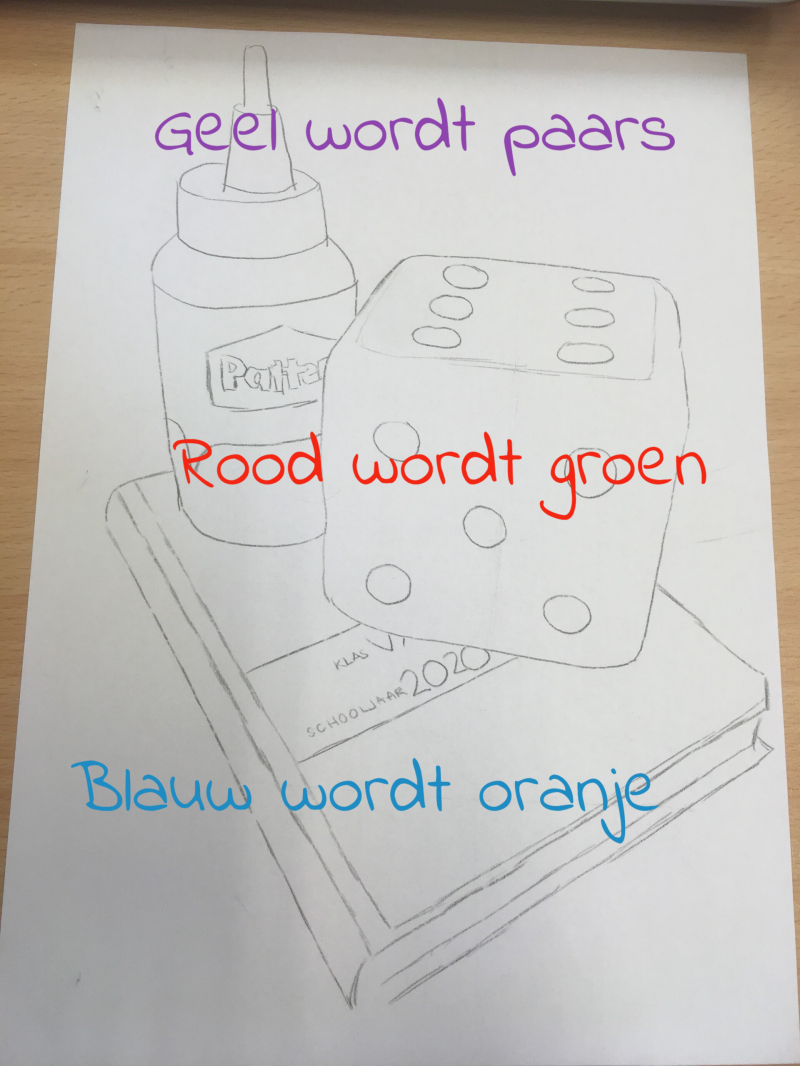 Geel wordt paars
Patte
Rood wordt groen
KLAS V
SCHOOLJAAR 2020
Blauw wordt oranje